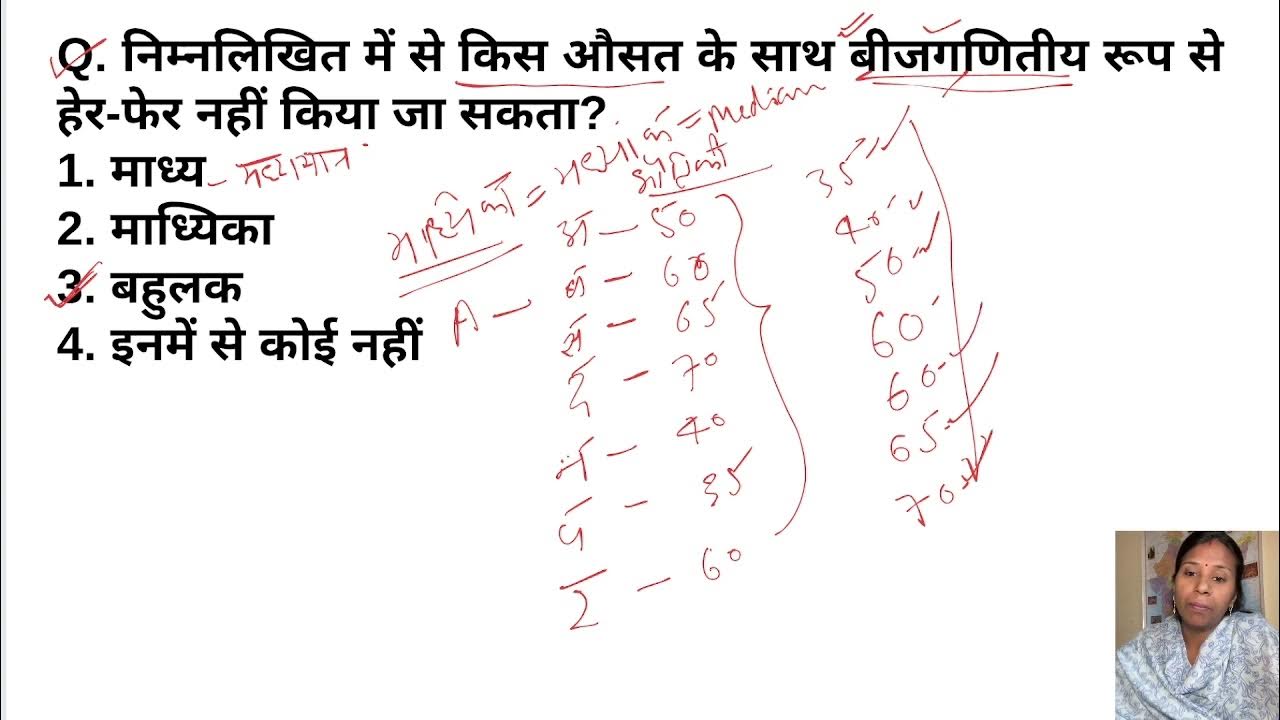 Q. निम्नलिखित में से किस औसत के साथ बीजगणितीय रूप से
हेर-फेर नहीं किया जा सकता?
1. माध्य - मध्यमात्र
2. माध्यिका
3. बहुलक
4. इनमें से कोई नहीं
= मध्यांक = Median
A -
अ - 50
ब - 60
स - 65
द - 70
न - 40
प - 35
र - 60
35
40
50
60
60
65
70